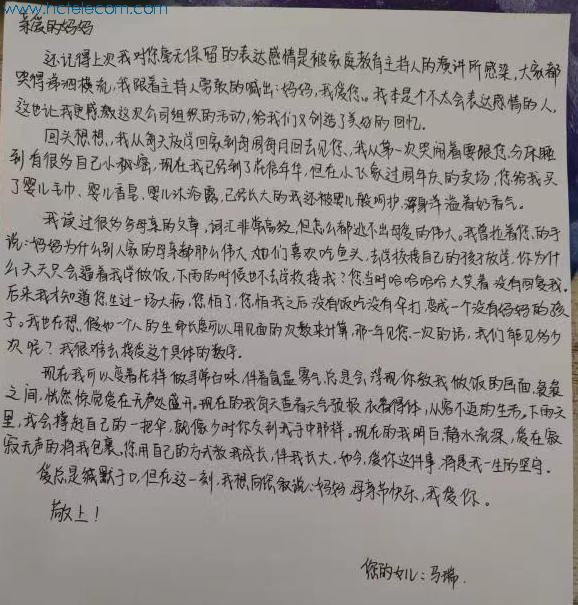 www.hctelecom.com
亲爱的妈妈
还记得上次我对您毫无保留的表达感情是被家庭教育主持人的演讲所感染,大家都
哭得涕泗横流,我跟着主持人勇敢的喊出:妈妈,我爱您。我本是个不太会表达感情的人,
这也让我更感激这次公司组织的活动,给我们又创造了美好的回忆。
回头想想,我从每天放学回家到每周每月回去见您,我从第一次哭闹着要跟您分床睡
到有很多自己小秘密,现在我已经到了花信年华,但在小飞象过周年庆的卖场,您给我买
了婴儿毛巾、婴儿香皂、婴儿沐浴露,已经长大的我还被婴儿般呵护,浑身洋溢着奶香气。
我读过很多写母亲的文章,词汇非常高级,但怎么都逃不出母爱的伟大。我曾拉着您的手
说:妈妈为什么别人家的母亲都那么伟大 她们喜欢吃鱼头、去学校接自己的孩子放学,你为什
么天天只会逼着我学做饭,下雨的时候也不去学校接我?您当时哈哈哈哈大笑着没有回复我。
后来我才知道您生过一场大病,您怕了,您怕我之后没有饭吃没有伞打,变成一个没有妈妈的孩
子。我也在想,假如一个人的生命长度可以用见面的次数来计算,那一年见您一次的话,我们能见多少
次呢?我很难去接受这个具体的数字。
现在我可以变着花样做寻常百味,伴着氤氲雾气总是会浮现你教我做饭的画面,袅袅
之间,恍然惊觉爱在无声处盛开。现在的我每天查看天气预报 衣着得体,从容不迫的生活。下雨天
里,我会撑起自己的一把伞,就像少时你交到我手中那样。现在的我明白,静水流深,爱在寂
寂无声的将我包裹。您用自己的方式教我成长,伴我长大,如今,爱你这件事 将是我一生的坚守。
爱总是缄默于口,但在这一刻,我想向您叙说:妈妈 母亲节快乐,我爱你。
敬上!
您的女儿:马瑞